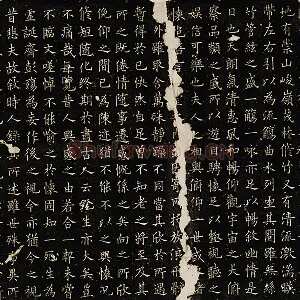 地有崇山峻嶺茂林脩竹又有清流激湍映
帶左右引以為流觴曲水列坐其次雖無絲
竹管弦之盛一觴一詠亦足以暢敘幽情是
日也天朗氣清惠風和暢仰觀宇宙之大俯
察品類之盛所以遊目騁懷足以極視聽之
娛信可樂也夫人之相與俯仰一世或取諸
懷抱
不同當其欣於所遇
暫得於己快然自足不知老之將至及其
所之既惓情隨事遷感慨係之矣向之所欣
俛仰之間已為陳迹猶不能不以之興懷況
脩短隨化終期於盡古人云死生亦大矣豈
不痛哉每覽昔人興感之由若合一契未嘗
不臨文嗟悼不能喻之於懷固知一死生為
虛誕齊彭殤為妄作後之視今亦猶今之視
昔悲夫故敘時人錄其所述雖世殊事異所